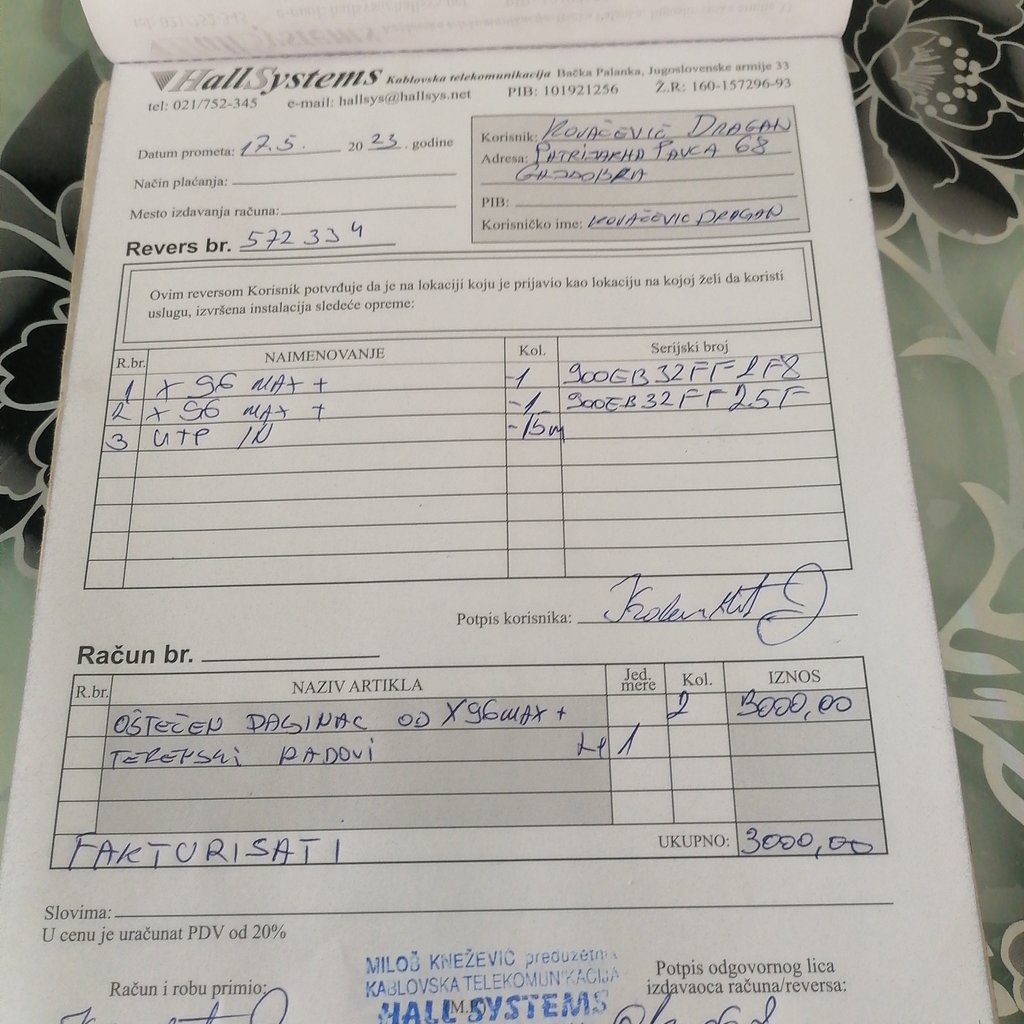 HallSystems Kablovska telekomunikacija Bačka Palanka, Jugoslovenske armije 33
tel: 021/752-345 e-mail: hallsys@hallsys.net PIB: 101921256 Ž.R: 160-157296-93
Datum prometa: 17.5. 20 23. godine
Način plaćanja:
Mesto izdavanja računa:
Revers br. 572 334
Korisnik: KOVAČEVIĆ DRAGAN
Adresa: PATRIJARHA PAVLA 68
GAJDOBRA
PIB:
Korisničko ime: KOVAČEVIC DRAGAN
Ovim reversom Korisnik potvrđuje da je na lokaciji koju je prijavio kao lokaciju na kojoj želi da koristi
uslugu, izvršena instalacija sledeće opreme:
R.br. NAIMENOVANJE Kol. Serijski broj
1 X 96 MAX + -1 900EB32FF2F8
2 X 96 MAX + -1 900EB32FF25F
3 UTP IN -15m
Potpis korisnika:
Račun br.
R.br. NAZIV ARTIKLA Jed. mere Kol. IZNOS
OŠTEĆEN DALJINAC OD X96MAX + 2 3000,00
TERENSKI RADOVI 1
FAKTURISATI UKUPNO: 3000,00
Slovima:
U cenu je uračunat PDV od 20%
MILOŠ KNEŽEVIĆ preduzetnik
KABLOVSKA TELEKOMUNIKACIJA
HALL SYSTEMS
M.P.
Račun i robu primio:
Potpis odgovornog lica
izdavaoca računa/reversa: